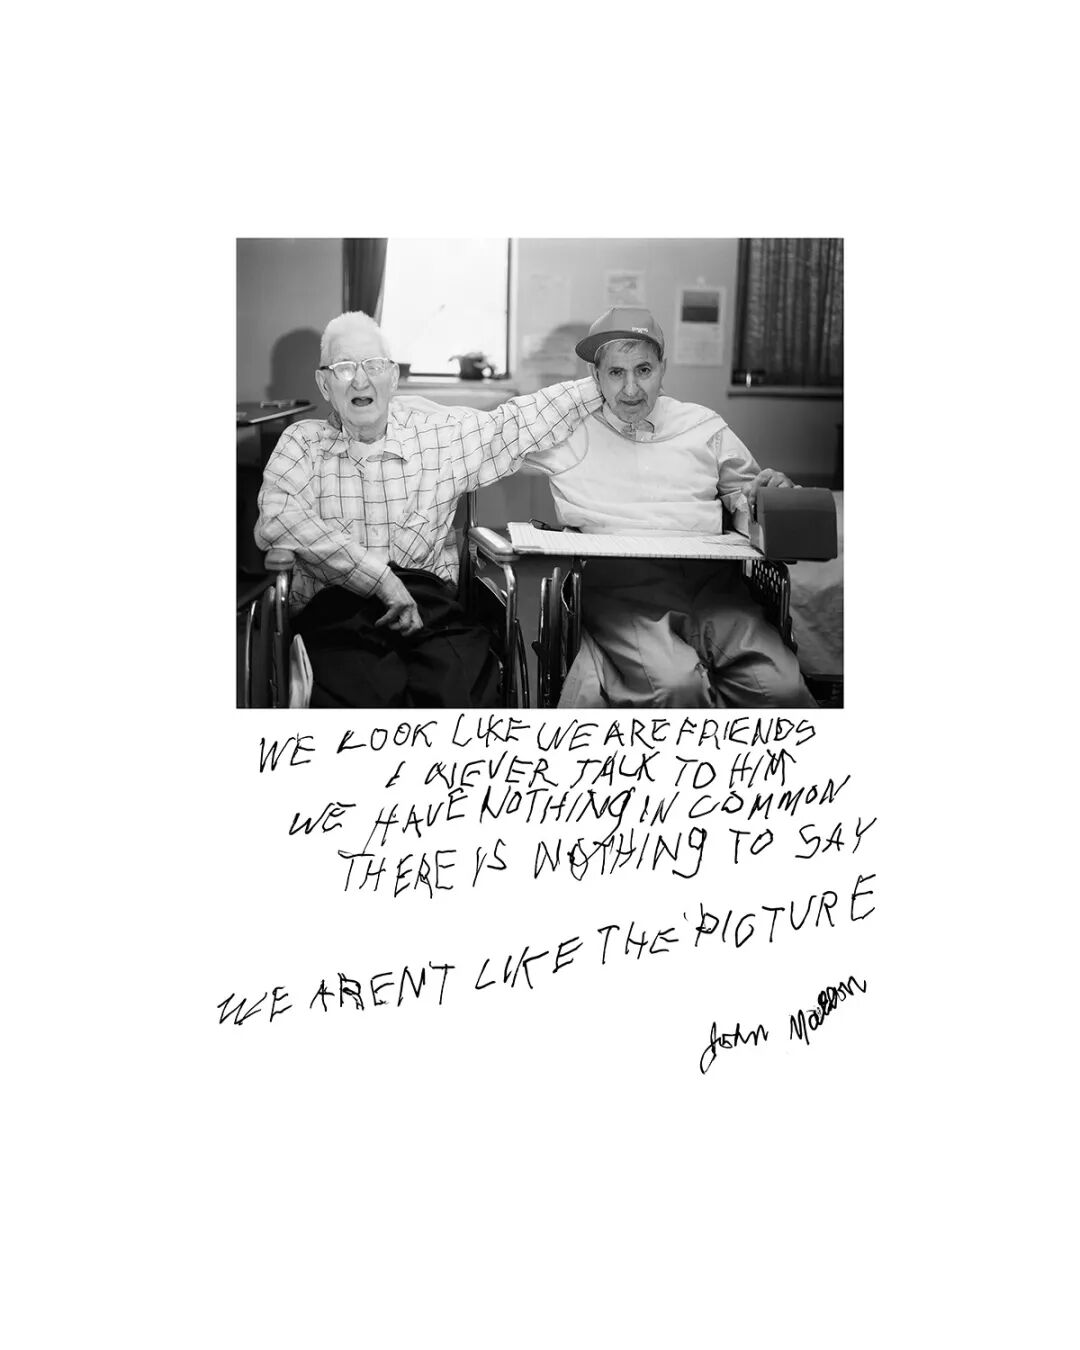 WE LOOK LIKE WE ARE FRIENDS
I NEVER TALK TO HIM
WE HAVE NOTHING IN COMMON
THERE IS NOTHING TO SAY
WE ARENT LIKE THE PICTURE
John